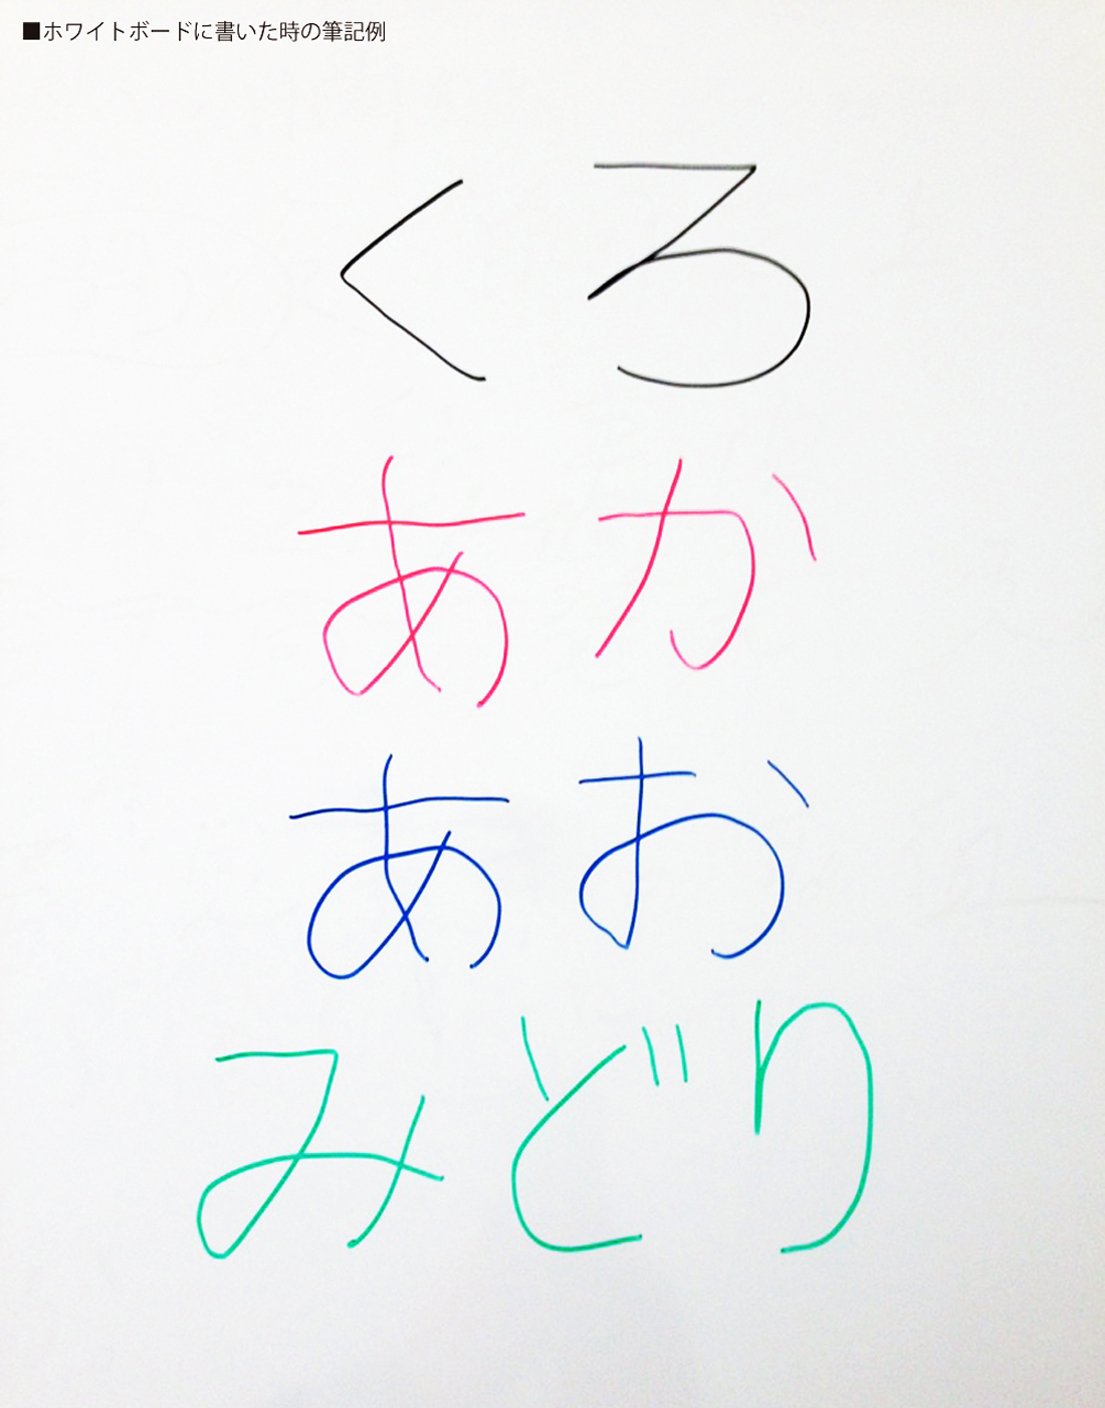 ■ホワイトボードに書いた時の筆記例
くろ
あか
あお
みどり